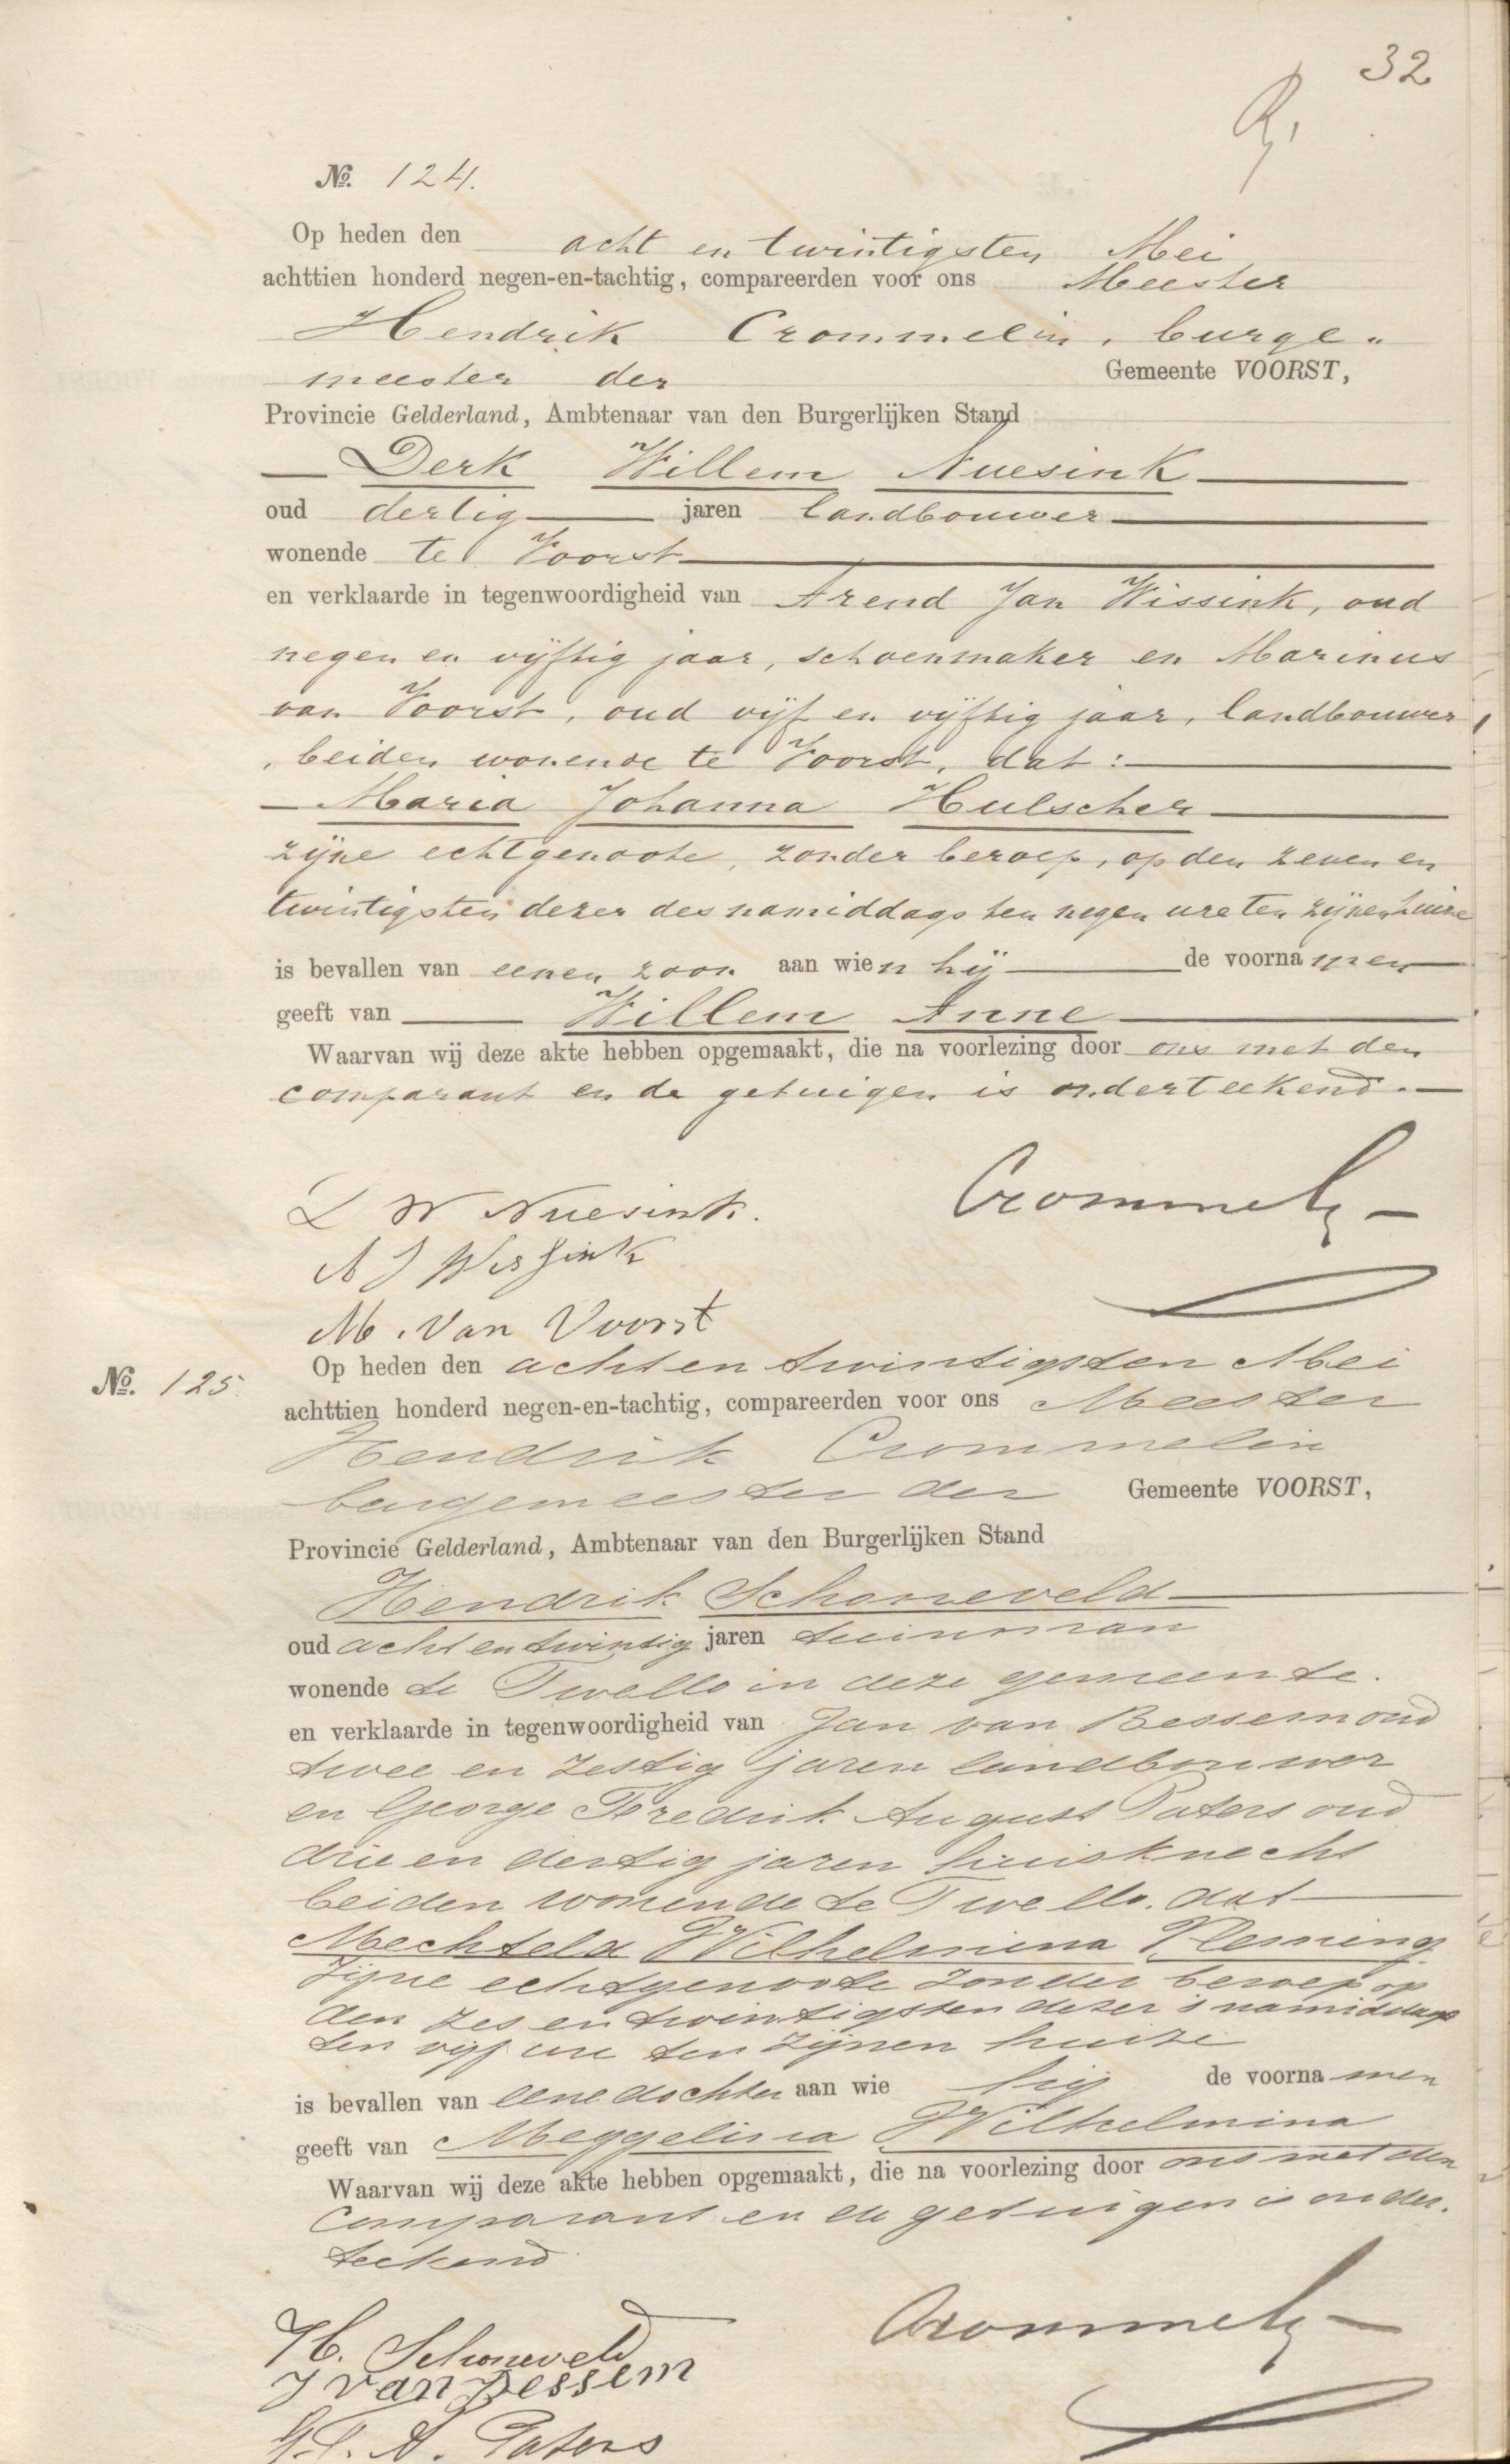 32
No. 124.
Op heden den acht en twintigsten Mei
achttien honderd negen-en-tachtig, compareerden voor ons Meester
Hendrik Crommelin, burge„
meester der Gemeente VOORST,
Provincie Gelderland, Ambtenaar van den Burgerlijken Stand
Derk Willem Nuesink
oud dertig jaren landbouwer
wonende te Voorst
en verklaarde in tegenwoordigheid van Arend Jan Wissink, oud
negen en vijftig jaar, schoenmaker en Marinus
van Voorst, oud vijf en vijftig jaar, landbouwer
, beiden wonende te Voorst, dat:
Maria Johanna Hulscher
zijne echtgenoote, zonder beroep, op den zeven en
twintigsten dezer des namiddags ten negen ure ten zijnen huize
is bevallen van eenen zoon aan wien hij de voornamen
geeft van Willem Anne
Waarvan wij deze akte hebben opgemaakt, die na voorlezing door ons met den
comparant en de getuigen is onderteekend.
D W Nuesink. Crommelin
A J Wissink
M. Van Voorst
No. 125.
Op heden den acht en twintigsten Mei
achttien honderd negen-en-tachtig, compareerden voor ons Meester
Hendrik Crommelin
burgemeester der Gemeente VOORST,
Provincie Gelderland, Ambtenaar van den Burgerlijken Stand
Hendrik Schoneveld
oud acht en twintig jaren tuinman
wonende te Twello in deze gemeente.
en verklaarde in tegenwoordigheid van Jan van Bessem oud
twee en zestig jaren landbouwer
en George Fredrik August Paters oud
drie en dertig jaren huisknecht
beiden wonende te Twello. dat
Mechteld Wilhelmina Fleming
zijne echtgenoote zonder beroep op
den zes en twintigsten dezer 's namiddags
ten vijf ure ten zijnen huize
is bevallen van eene dochter aan wie hij de voornamen
geeft van Meggelina Wilhelmina
Waarvan wij deze akte hebben opgemaakt, die na voorlezing door ons met den
Comparant en de getuigen is onder.
teekend
H. Schoneveld Crommelin
J van Bessem
G. F. A. Paters